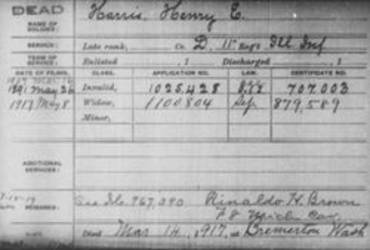 DEAD
NAME OF SOLDIER: Harris, Henry E.
SERVICE: Late rank, Co. D, 11" Reg't Ill Inf
TERM OF SERVICE: Enlisted , 1 Discharged , 1
DATE OF FILING. CLASS. APPLICATION NO. LAW. CERTIFICATE NO.
1891 May 26 Invalid, 1025,428 707,003
1917 May 8 Widow, 1100804 879,589
Minor,
ADDITIONAL SERVICES:
REMARKS: 967,390 Rinaldo H. Brown
F 8 Mich Cav
Died Mar 14, 1917, at Bremerton Wash